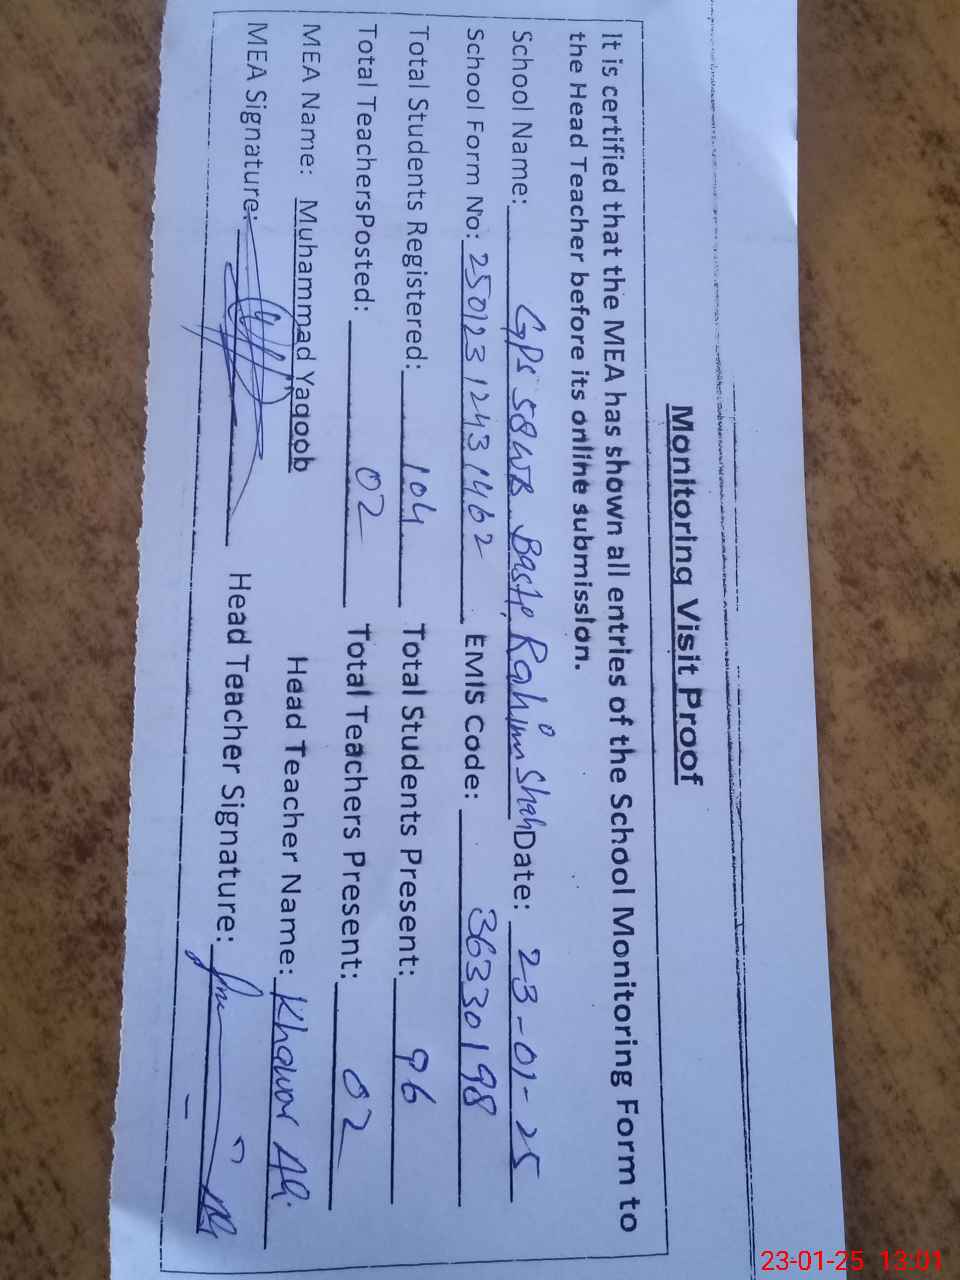 Monitoring Visit Proof
It is certified that the MEA has shown all entries of the School Monitoring Form to
the Head Teacher before its online submission.
School Name: GPS 58WB Basti Rahim Shah Date: 23-01-25
School Form No: 250123 12431462 EMIS Code: 36330198
Total Students Registered: 104 Total Students Present: 96
Total TeachersPosted: 02 Total Teachers Present: 02
MEA Name: Muhammad Yaqoob Head Teacher Name: Khawar Ali
MEA Signature: Head Teacher Signature:
23-01-25 13:01